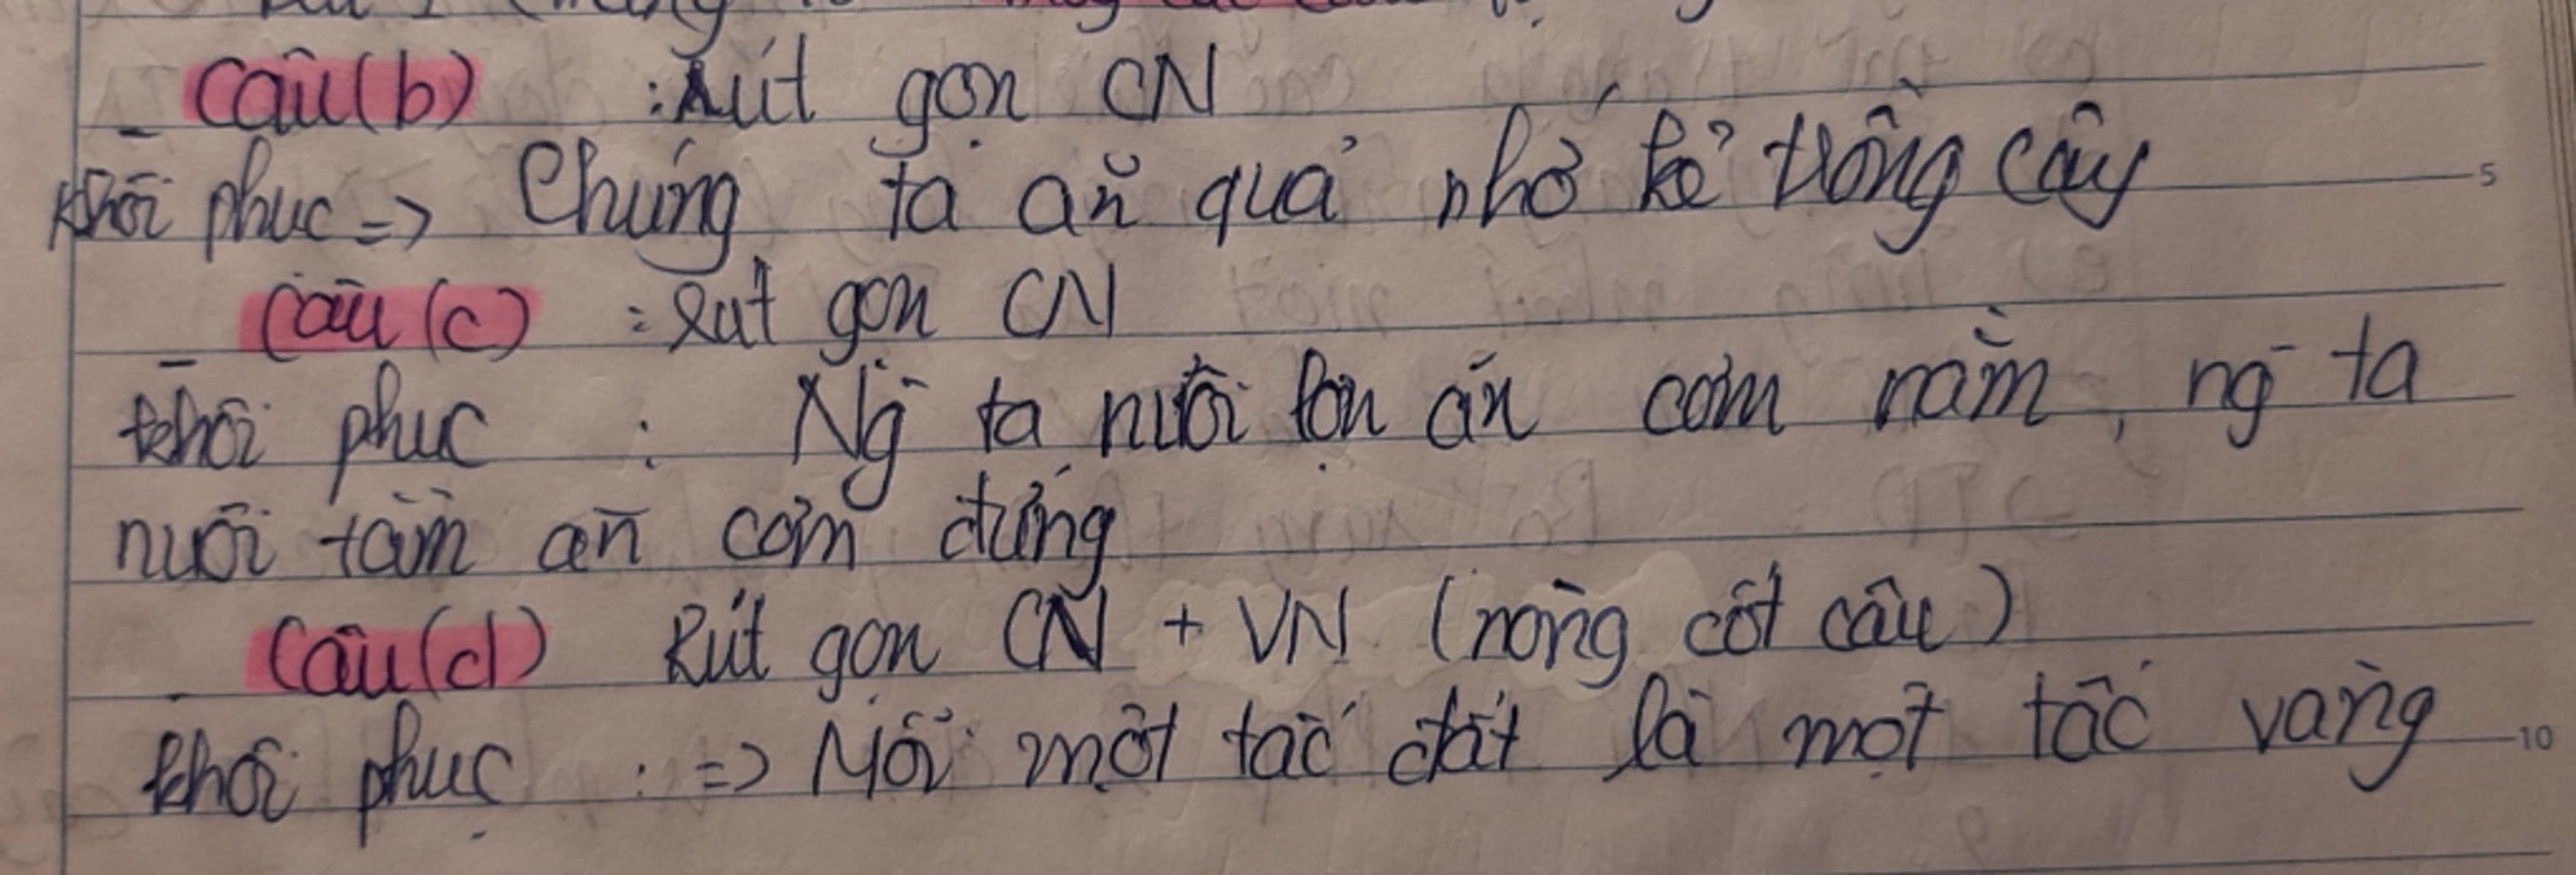 Câu (b) : Rút gọn CN
Khôi phục => Chúng ta ăn quả nhớ kẻ trồng cây
Câu (c) : Rút gọn CN
khôi phục : Ng ta nuôi lợn ăn cơm nằm, ng ta
nuôi tằm ăn cơm đứng
Câu (d) Rút gọn CN + VN (nòng cốt câu)
khôi phục : => Mỗi một tấc đất là một tấc vàng
5
10